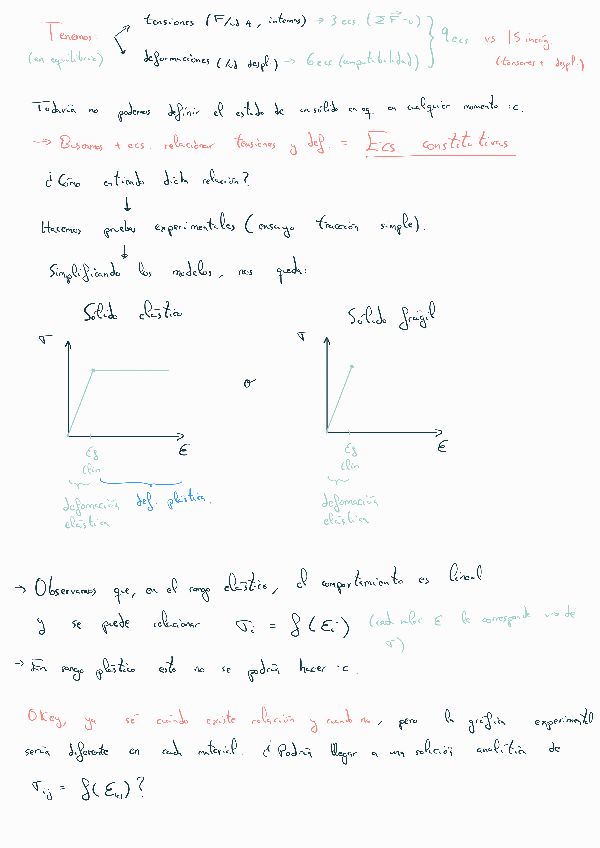 Tenemos:
(en equilibrio)
tensiones (F/ud A, internos) → 3 ecs. (Σ F = 0)
deformaciones (ud despl.) → 6 ecs (compatibilidad)
9 ecs vs 15 incóg
(tensores + despl.)
Todavía no podemos definir el estado de un sólido en eq. en cualquier momento :c.
→ Buscamos + ecs. relacionar tensiones y def. = Ecs constitutivas
¿Cómo entiendo dicha relación?
↓
Hacemos pruebas experimentales (ensayo tracción simple).
↓
Simplificando los modelos, nos queda:
Sólido elástico
Sólido frágil
σ
σ
o
ε
ε
deformación
elástica
def. plástica.
deformación
elástica
→ Observamos que, en el rango elástico, el comportamiento es lineal
y se puede relacionar σi = f(εi) (cada valor ε le corresponde uno de
σ)
→ En rango plástico esto no se podría hacer :c.
Okey, ya sé cuándo existe relación y cuando no, pero la gráfica experimental
sería diferente en cada material. ¿Podría llegar a una solución analítica de
σij = f(εkl)?